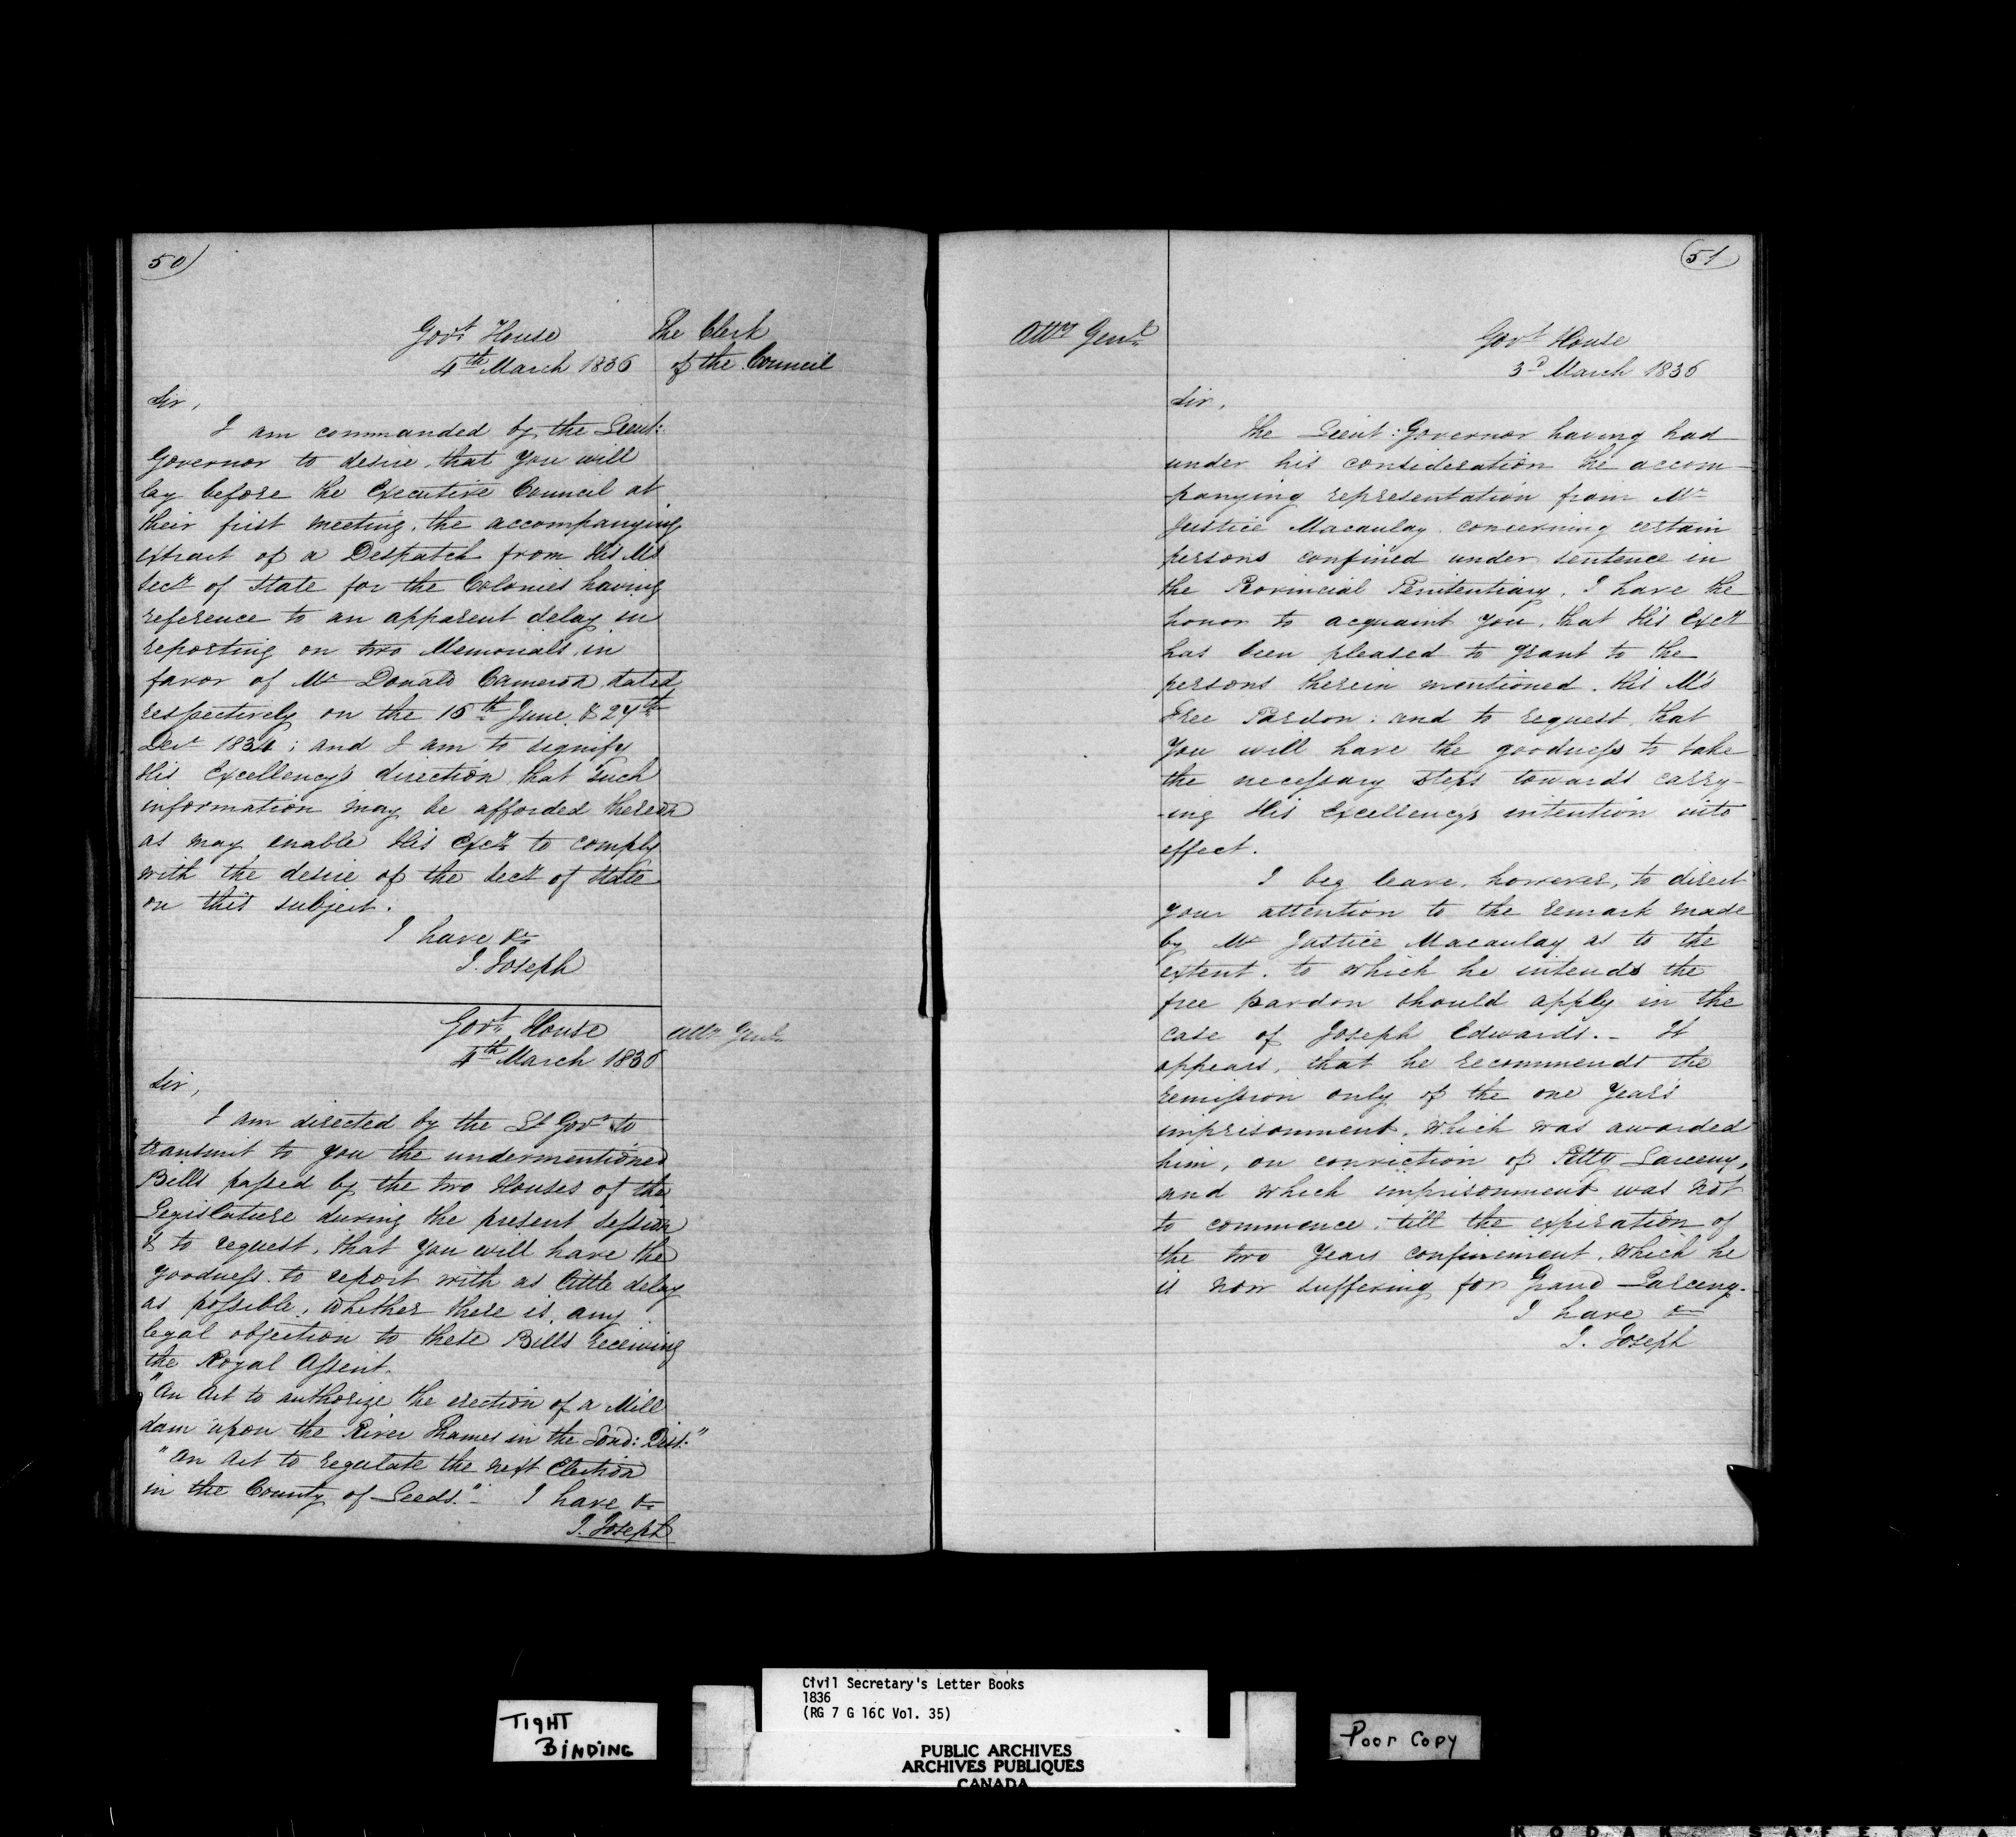 50
Govt House
4th March 1836
The Clerk
of the Council
Sir,
I am commanded by the Lieut:
Governor to desire, that you will
lay before the Executive Council at
their first meeting, the accompanying
extract of a Despatch from His M's
Secy of State for the Colonies having
reference to an apparent delay in
reporting on two Memorials in
favor of Mr Donald Cameron dated
respectively on the 16th June & 24th
Decr 1834; and I am to signify
His Excellency's direction that such
information may be afforded thereon
as may enable His Excy to comply
with the desire of the Secy of State
on this subject.
I have &c
J. Joseph
Govt House
4th March 1836
Atty Genl
Sir,
I am directed by the Lt Govr to
transmit to you the undermentioned
Bills passed by the two Houses of the
Legislature during the present Session
& to request, that you will have the
goodness to report with as little delay
as possible, whether there is any
legal objection to these Bills receiving
the Royal Assent.
"An Act to authorize the erection of a Mill
dam upon the River Thames in the Lond: Dist:"
"An Act to regulate the next Election
in the County of Leeds." I have &c
J. Joseph
51
Atty Genl
Govt House
3d March 1836
Sir,
The Lieut: Governor having had
under his consideration the accom-
panying representation from Mr
Justice Macaulay concerning certain
persons confined under sentence in
the Provincial Penitentiary, I have the
honor to acquaint you, that His Excy
has been pleased to grant to the
persons therein mentioned, His M's
Free Pardon: and to request, that
you will have the goodness to take
the necessary steps towards carry-
-ing His Excellency's intention into
effect.
I beg leave, however, to direct
your attention to the remark made
by Mr Justice Macaulay as to the
extent, to which he intends the
free pardon should apply in the
case of Joseph Edwards. - It
appears, that he recommends the
remission only of the one year's
imprisonment, which was awarded
him, on conviction of Petty Larceny,
and which imprisonment was not
to commence, till the expiration of
the two years confinement, which he
is now suffering for Grand Larceny.
I have &c
J. Joseph
TIGHT
BINDING
Civil Secretary's Letter Books
1836
(RG 7 G 16C Vol. 35)
PUBLIC ARCHIVES
ARCHIVES PUBLIQUES
CANADA
Poor Copy
KODAK SAFETY A